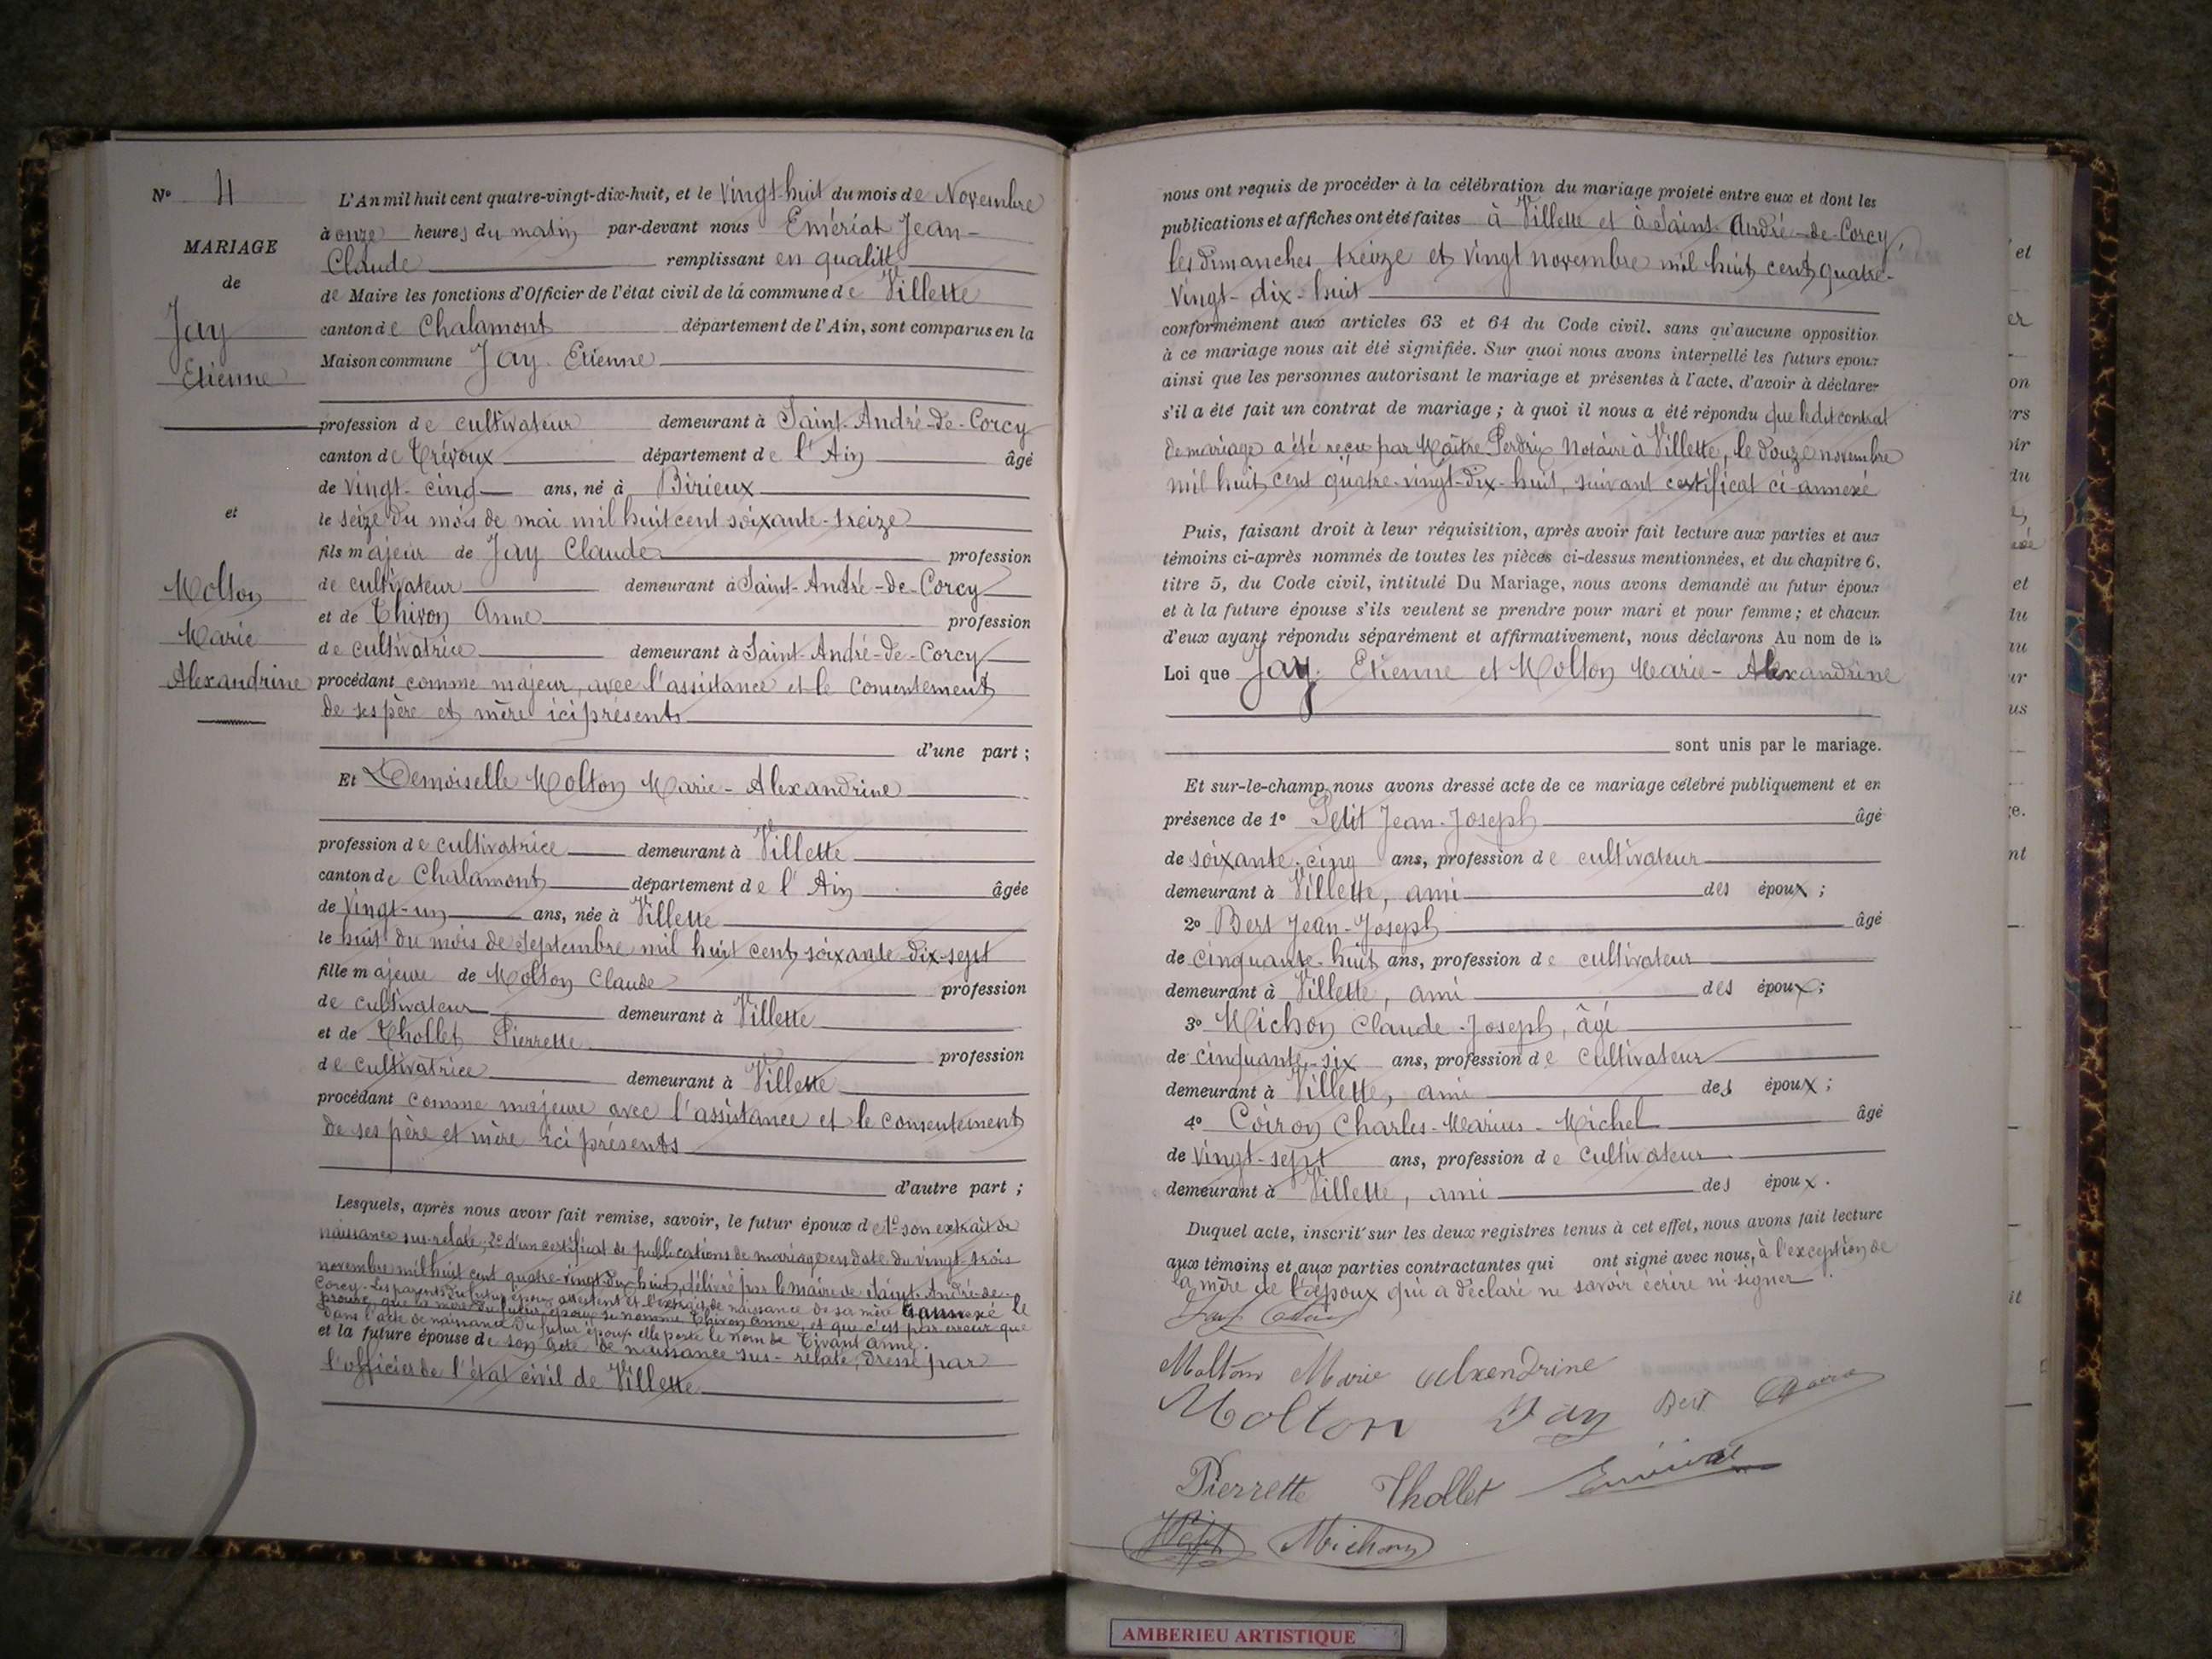 N° 4
MARIAGE
de
Jay
Etienne
et
Molton
Marie
Alexandrine
L'An mil huit cent quatre-vingt-dix-huit, et le vingt-huit du mois de Novembre
à onze heures du matin par-devant nous Emériat Jean-
Claude remplissant en qualité
de Maire les fonctions d'Officier de l'état civil de la commune de Villette
canton de Chalamont département de l'Ain, sont comparus en la
Maison commune Jay Etienne
profession de cultivateur demeurant à Saint-André-de-Corcy
canton de Trévoux département de l'Ain âgé
de vingt-cinq ans, né à Birieux
le seize du mois de mai mil huit cent soixante-treize
fils majeur de Jay Claude profession
de cultivateur demeurant à Saint-André-de-Corcy
et de Thivon Anne profession
de cultivatrice demeurant à Saint-André-de-Corcy
procédant comme majeur, avec l'assistance et le consentement
de ses père et mère ici présents
d'une part ;
Et Demoiselle Molton Marie-Alexandrine
profession de cultivatrice demeurant à Villette
canton de Chalamont département de l'Ain âgée
de vingt-un ans, née à Villette
le huit du mois de septembre mil huit cent soixante-dix-sept
fille majeure de Molton Claude profession
de cultivateur demeurant à Villette
et de Thollet Pierrette profession
de cultivatrice demeurant à Villette
procédant comme majeure avec l'assistance et le consentement
de ses père et mère ici présents
d'autre part ;
Lesquels, après nous avoir fait remise, savoir, le futur époux de 1° son extrait de
naissance sus-relaté; 2° d'un certificat de publications de mariage en date du vingt-trois
novembre mil huit cent quatre-vingt-dix-huit, délivré par le maire de Saint-André-de-
Corcy. Les parents du futur époux attestent et l'extrait de naissance de sa mère annexé le
prouve, que la mère du futur époux se nomme Thivon Anne, et que c'est par erreur que
dans l'acte de naissance du futur époux elle porte le nom de Tivant Anne.
et la future épouse de son acte de naissance sus-relaté, dressé par
l'officier de l'état civil de Villette
nous ont requis de procéder à la célébration du mariage projeté entre eux et dont les
publications et affiches ont été faites à Villette et à Saint-André-de-Corcy,
les dimanches treize et vingt novembre mil huit cent quatre-
vingt-dix-huit
conformément aux articles 63 et 64 du Code civil, sans qu'aucune opposition
à ce mariage nous ait été signifiée. Sur quoi nous avons interpellé les futurs époux
ainsi que les personnes autorisant le mariage et présentes à l'acte, d'avoir à déclarer
s'il a été fait un contrat de mariage ; à quoi il nous a été répondu que ledit contrat
de mariage a été reçu par Maître Perdrix Notaire à Villette, le douze novembre
mil huit cent quatre-vingt-dix-huit, suivant certificat ci-annexé
Puis, faisant droit à leur réquisition, après avoir fait lecture aux parties et aux
témoins ci-après nommés de toutes les pièces ci-dessus mentionnées, et du chapitre 6,
titre 5, du Code civil, intitulé Du Mariage, nous avons demandé au futur époux
et à la future épouse s'ils veulent se prendre pour mari et pour femme ; et chacun
d'eux ayant répondu séparément et affirmativement, nous déclarons Au nom de la
Loi que Jay Etienne et Molton Marie-Alexandrine
sont unis par le mariage.
Et sur-le-champ nous avons dressé acte de ce mariage célébré publiquement et en
présence de 1° Petit Jean-Joseph âgé
de soixante-cinq ans, profession de cultivateur
demeurant à Villette, ami des époux ;
2° Bert Jean-Joseph âgé
de cinquante-huit ans, profession de cultivateur
demeurant à Villette, ami des époux ;
3° Michon Claude-Joseph, âgé
de cinquante-six ans, profession de cultivateur
demeurant à Villette, ami des époux ;
4° Coiron Charles-Marius-Michel âgé
de vingt-sept ans, profession de cultivateur
demeurant à Villette, ami des époux.
Duquel acte, inscrit sur les deux registres tenus à cet effet, nous avons fait lecture
aux témoins et aux parties contractantes qui ont signé avec nous, à l'exception de
la mère de l'époux qui a déclaré ne savoir écrire ni signer.
Molton Marie Alexendrine
Molton Jay Bert
Pierrette Thollet Emériat
Petit Michon
AMBERIEU ARTISTIQUE